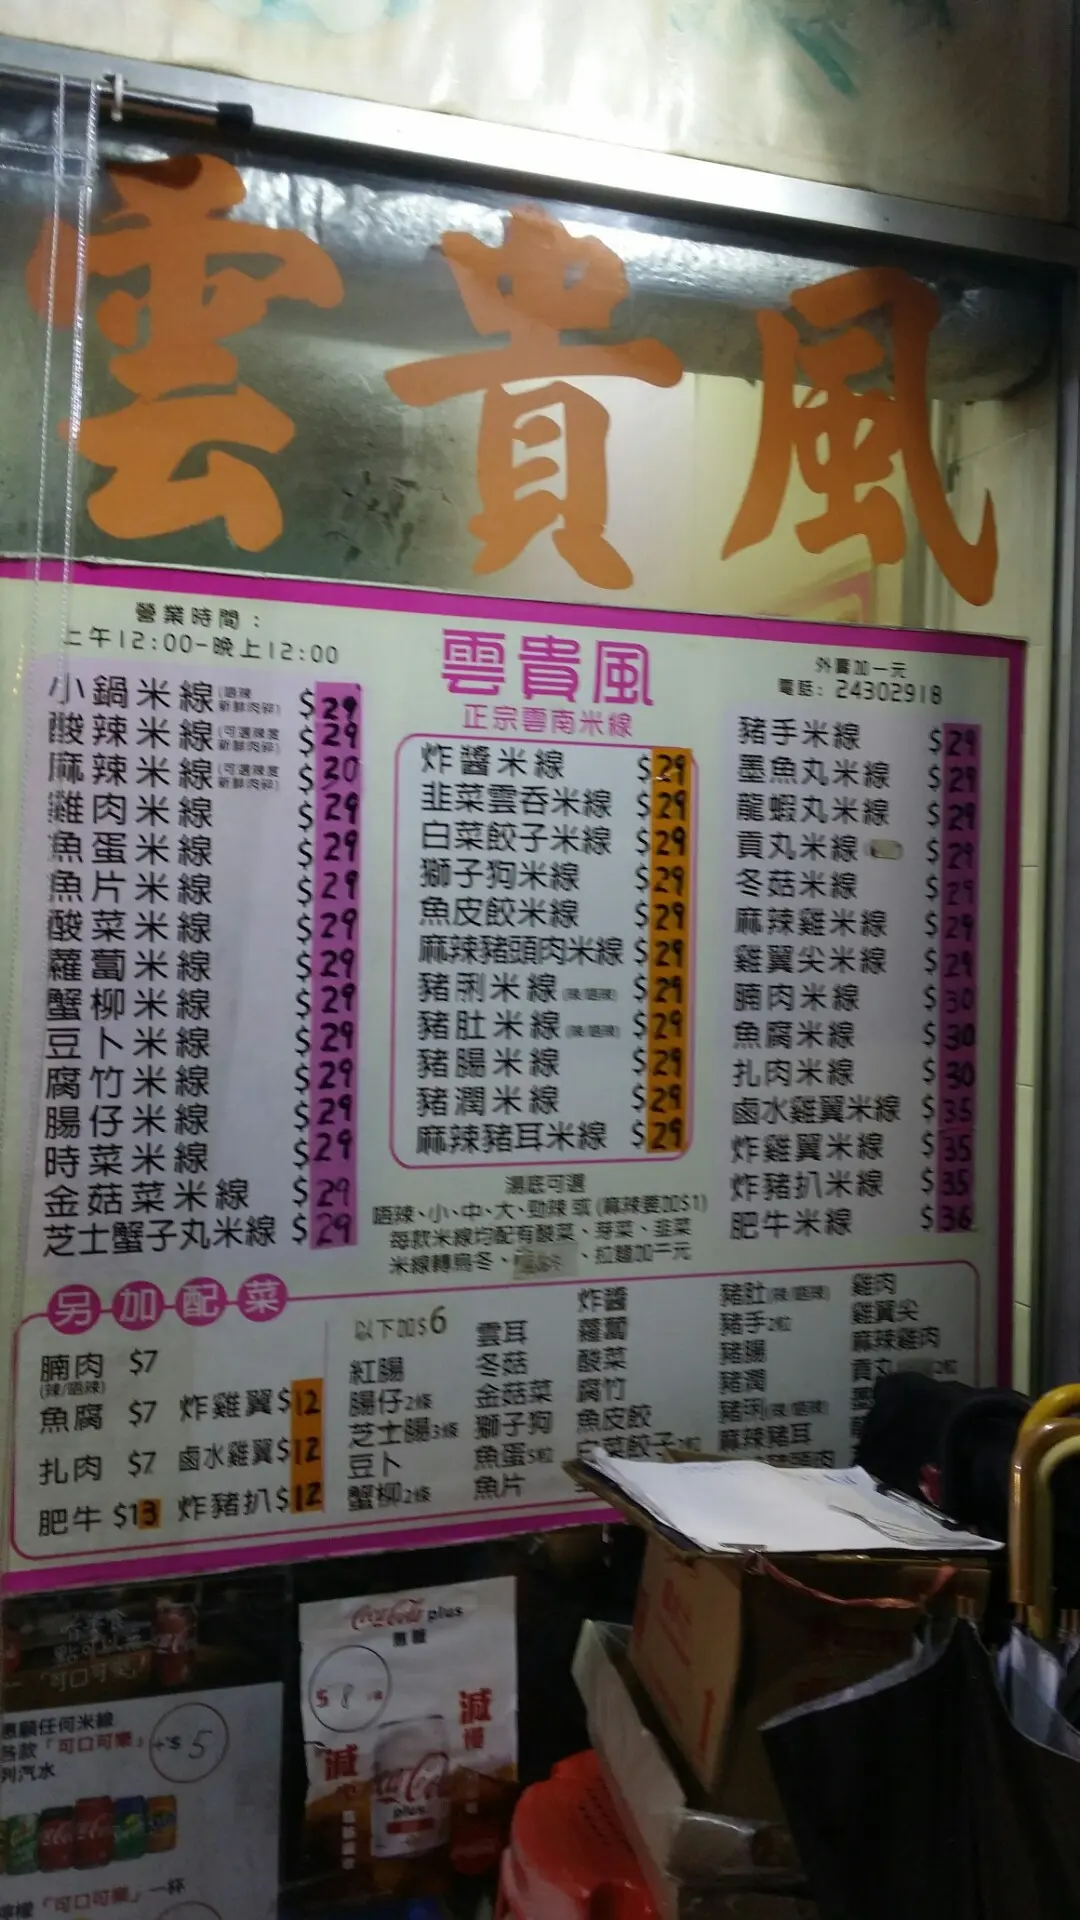 雲貴風
營業時間：
上午12:00-晚上12:00
雲貴風
正宗雲南米線
外賣加一元
電話: 24302918
小鍋米線(唔辣 新鮮肉碎) $29
酸辣米線(可選辣度 新鮮肉碎) $29
麻辣米線(可選辣度 新鮮肉碎) $30
雞肉米線 $29
魚蛋米線 $29
魚片米線 $29
酸菜米線 $29
蘿蔔米線 $29
蟹柳米線 $29
豆卜米線 $29
腐竹米線 $29
腸仔米線 $29
時菜米線 $29
金菇菜米線 $29
芝士蟹子丸米線 $29
炸醬米線 $29
韭菜雲吞米線 $29
白菜餃子米線 $29
獅子狗米線 $29
魚皮餃米線 $29
麻辣豬頭肉米線 $29
豬脷米線(辣/唔辣) $29
豬肚米線(辣/唔辣) $29
豬腸米線 $29
豬潤米線 $29
麻辣豬耳米線 $29
豬手米線 $29
墨魚丸米線 $29
龍蝦丸米線 $29
貢丸米線 $29
冬菇米線 $29
麻辣雞米線 $29
雞翼尖米線 $29
腩肉米線 $30
魚腐米線 $30
扎肉米線 $30
鹵水雞翼米線 $35
炸雞翼米線 $35
炸豬扒米線 $35
肥牛米線 $36
湯底可選
唔辣、小、中、大、勁辣 或 (麻辣要加$1)
每款米線均配有酸菜、芽菜、韭菜
米線轉烏冬、、拉麵加一元
另加配菜
腩肉 $7
(辣/唔辣)
魚腐 $7
扎肉 $7
肥牛 $13
炸雞翼 $12
鹵水雞翼 $12
炸豬扒 $12
以下加$6
紅腸
腸仔2條
芝士腸3條
豆卜
蟹柳2條
雲耳
冬菇
金菇菜
獅子狗
魚蛋5粒
魚片
炸醬
蘿蔔
酸菜
腐竹
魚皮餃
白菜餃子
豬肚(辣/唔辣)
豬手2粒
豬腸
豬潤
豬脷(辣/唔辣)
麻辣豬耳
豬頭肉
雞肉
雞翼尖
麻辣雞肉
貢丸 2粒
Coca-Cola plus
$8
減
減
Coca-Cola
plus
「可口可樂」
惠顧任何米線
各款「可口可樂」+$5
列汽水
檸檬「可口可樂」一杯